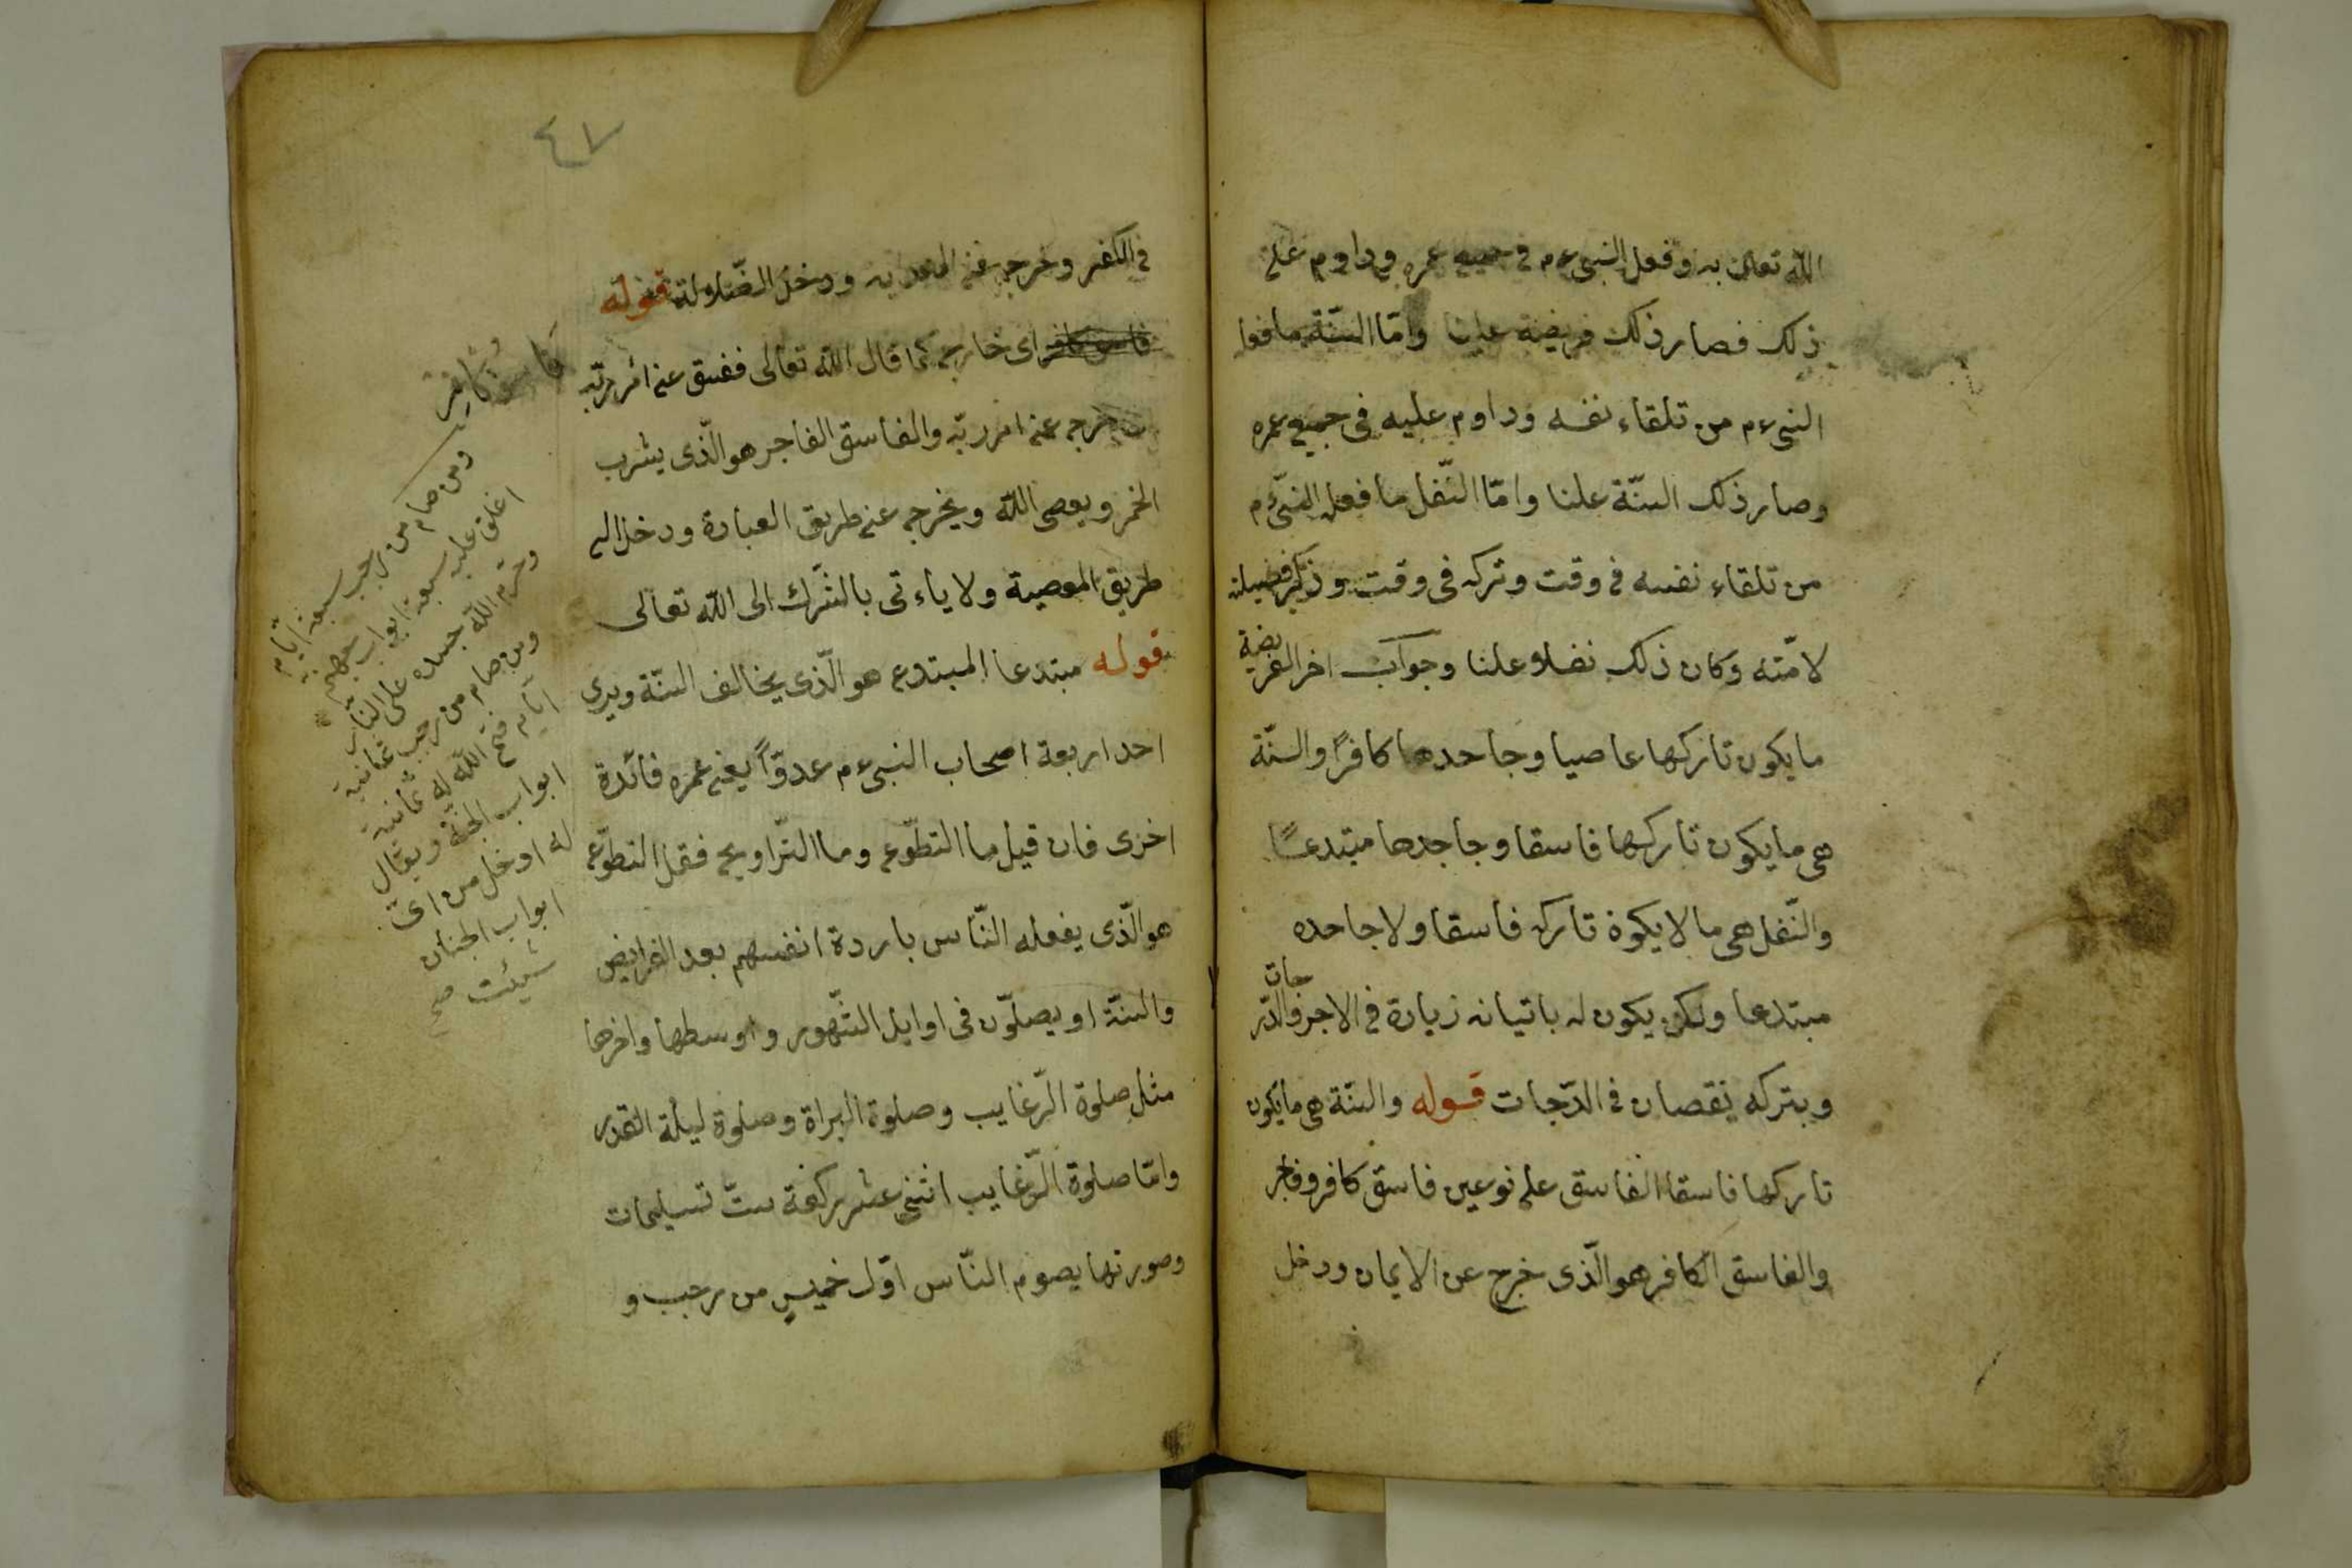 الله تعالى به وفعل النبى ءم فى جميع عمره وداوم على
ذلك فصار ذلك فريضة علينا وامّا السّنّة ما فعل
النبى ءم من تلقاء نفسه وداوم عليه فى جميع عمره
وصار ذلك السنّة علنا وامّا النّفل ما فعل النبّى ءم
من تلقاء نفسه فى وقت وتركه فى وقت وذكر فضيلة
لامّته وكان ذلك نفلا علنا وجواب اخر الفريضة
ما يكون تاركها عاصيا وجاحدها كافرًا والسنّة
هى ما يكون تاركها فاسقا وجاحدها مبتدعًا
والنّفل هى ما لا يكون تاركه فاسقا ولا جاحده
مبتدعا ولكن يكون له باتيانه زيادة فى الاجر والدّرجات
وبتركه نقصان فى الدّجات قوله والسنّة هى ما يكون
تاركها فاسقا الفاسق على نوعين فاسق كافر وفاجر
والفاسق الكافر هو الّذى خرج عن الايمان ودخل
٤٧
فى الكفر وخرج عن الهداية ودخل الضّلالة قوله
فاسق كافر اى خارج كما قال الله تعالى ففسق عن امر ربّه
خرج عن امر ربّه والفاسق الفاجر هو الّذى يشرب
الخمر ويعصى الله ويخرج عن طريق العبادة ودخل الى
طريق المعصية ولا ياءتى بالشّرك الى الله تعالى
قوله مبتدعا المبتدع هو الّذى يخالف السنّة ويرى
احد اربعة اصحاب النبى ءم عدوّاً يعنى عمره فائدة
اخرى فان قيل ما التطّوع وما التّراويح فقل التطوّع
هو الّذى يفعله النّاس باردة انفسهم بعد الفرايض
والسنّة او يصلّون فى اوايل الشّهور واوسطها واخرها
مثل صلوة الرّغايب وصلوة البراة وصلوة ليلة القدر
وامّا صلوة الرّغايب اثنى عشر ركعة ستّ تسليمات
وصورتها يصوم النّاس اوّل خميس من رجب و
فاسق كافر
ومن صام من رجب سبعة ايّام
اغلق عليه سبعة ابواب جهنم
وحرّم الله جسده على النّار
ومن صام من رجب ثمانية
ايّام فتح الله له ثمانية
ابواب الجنّة ويقال
له ادخل من اىّ
ابواب الجنان
شئت صح